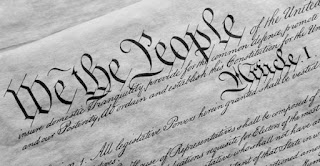 We the People of the United
insure domestic Tranquility, provide for the common defence, promote
and our Posterity, do ordain and establish this Constitution for the United
Article. I.
All legislative Powers herein granted shall be vested
House of Representatives shall be composed of
requisite for Electors of the most
shall not have